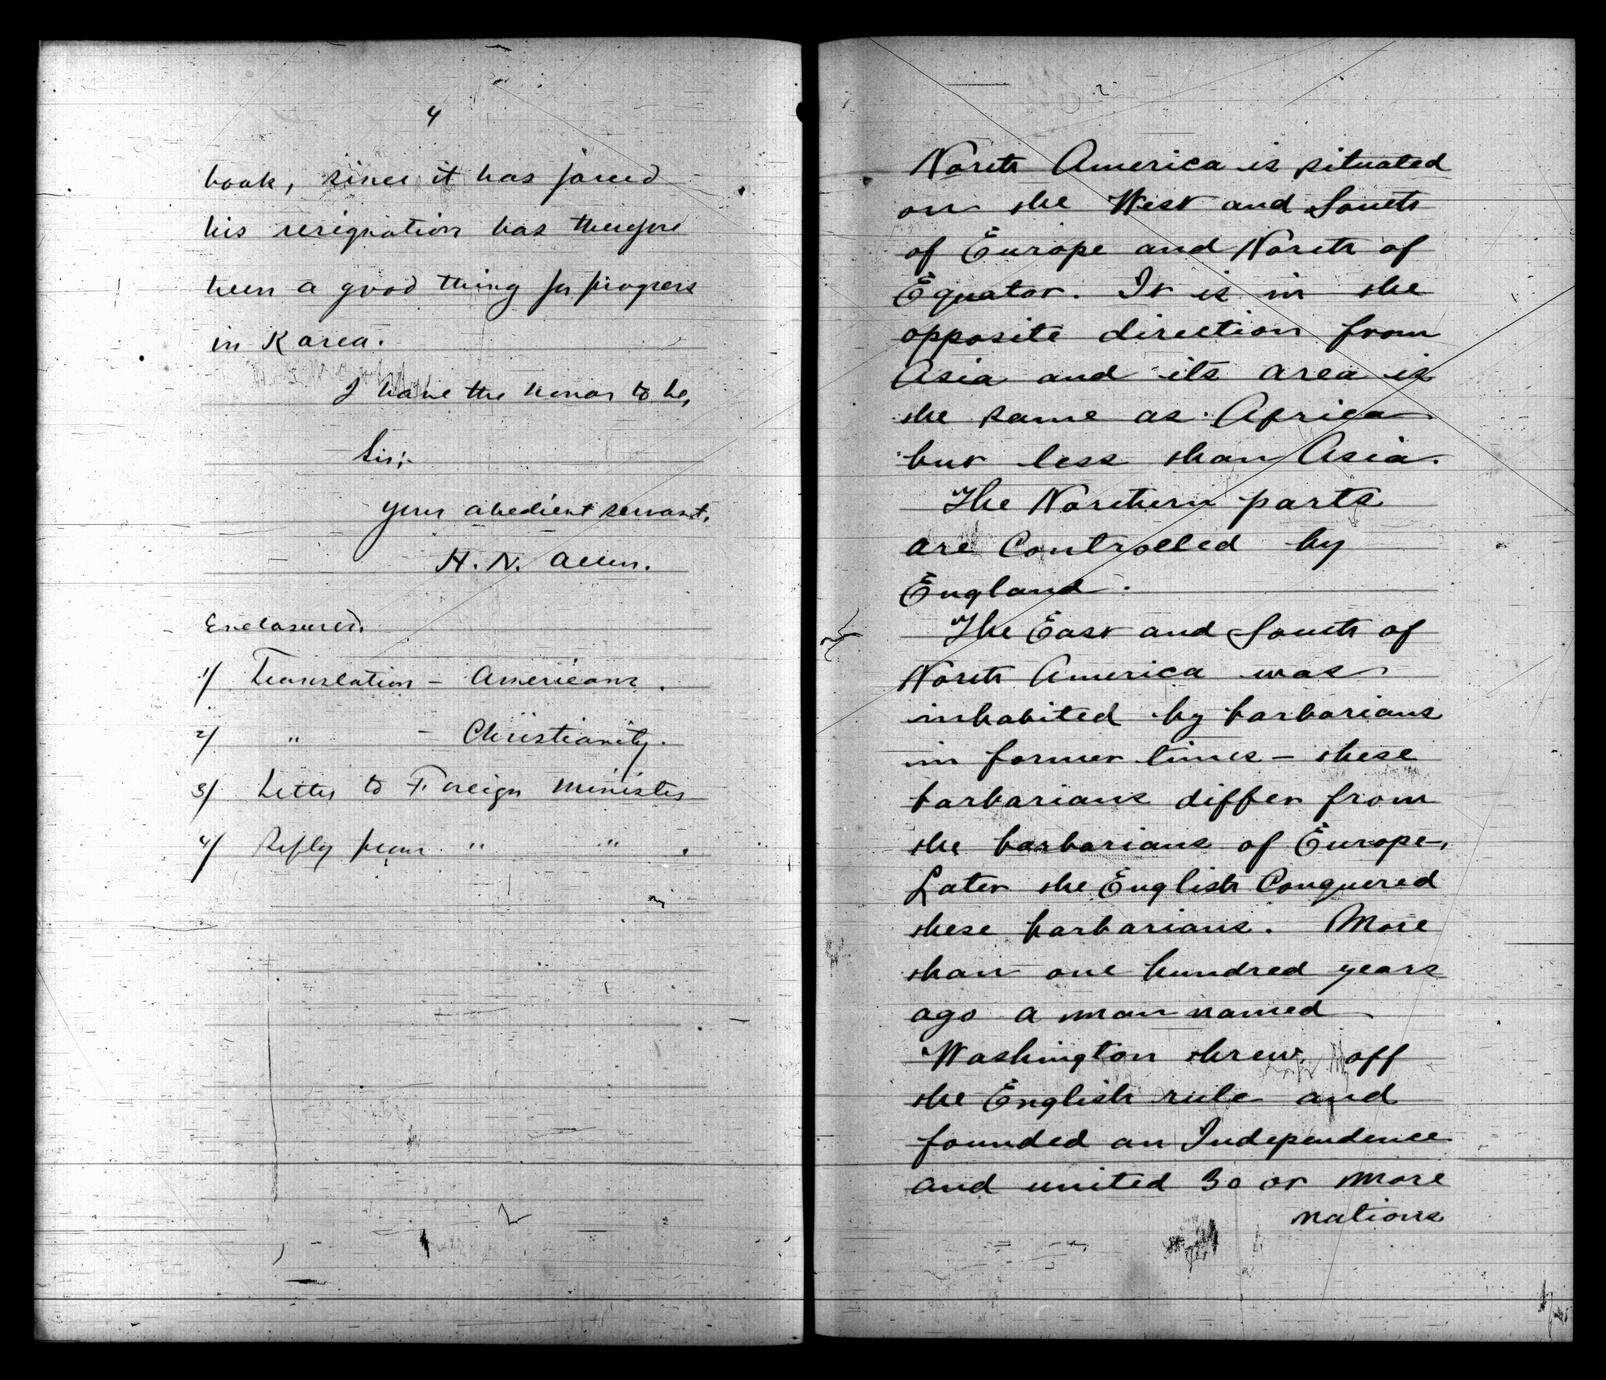 4
book, since it has forced
his resignation has therefore
been a good thing for progress
in Korea.
I have the honor to be,
Sir;
your obedient servant,
H. N. Allen.
Enclosures.
1/ Translation - Americans.
2/ " - Christianity.
3/ Letter to Foreign Minister
4/ Reply from " " .
North America is situated
on the West and South
of Europe and North of
Equator. It is in the
opposite direction from
Asia and its area is
the same as Africa
but less than Asia.
The Northern parts
are Controlled by
England.
The East and South of
North America was
inhabited by barbarians
in former times - these
barbarians differ from
the barbarians of Europe.
Later the English Conquered
these barbarians. More
than one hundred years
ago a man named
Washington threw off
the English rule and
founded an Independence
and united 30 or more
nations